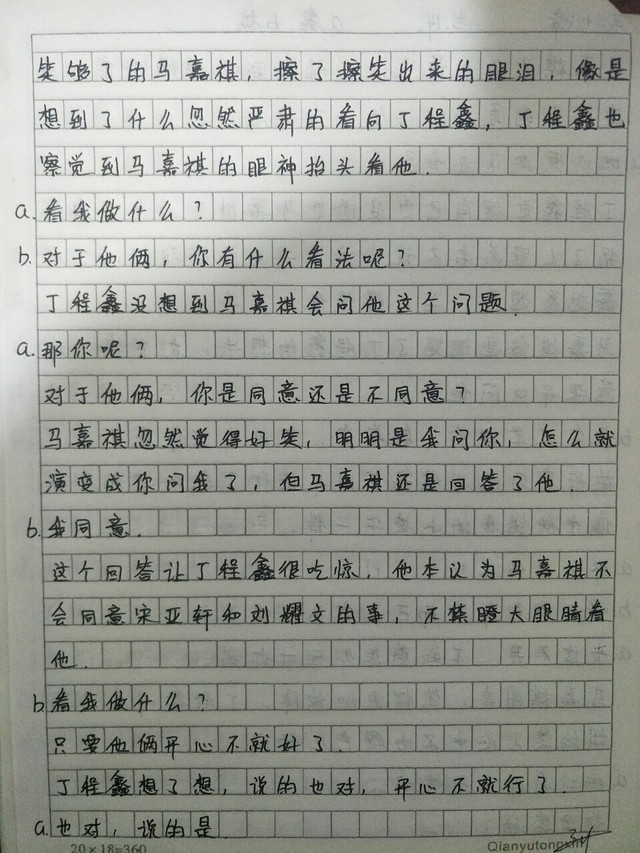 笑够了的马嘉祺，擦了擦笑出来的眼泪，像是
想到了什么忽然严肃的看向丁程鑫，丁程鑫也
察觉到马嘉祺的眼神抬头看他.
a.看我做什么？
b.对于他俩，你有什么看法呢？
丁程鑫没想到马嘉祺会问他这个问题.
a.那你呢？
对于他俩，你是同意还是不同意？
马嘉祺忽然觉得好笑，明明是我问你，怎么就
演变成你问我了，但马嘉祺还是回答了他.
b.我同意.
这个回答让丁程鑫很吃惊，他本认为马嘉祺不
会同意宋亚轩和刘耀文的事，不禁瞪大眼睛看
他.
b.看我做什么？
只要他俩开心不就好了.
丁程鑫想了想，说的也对，开心不就行了.
a.也对，说的是.
20×18=360